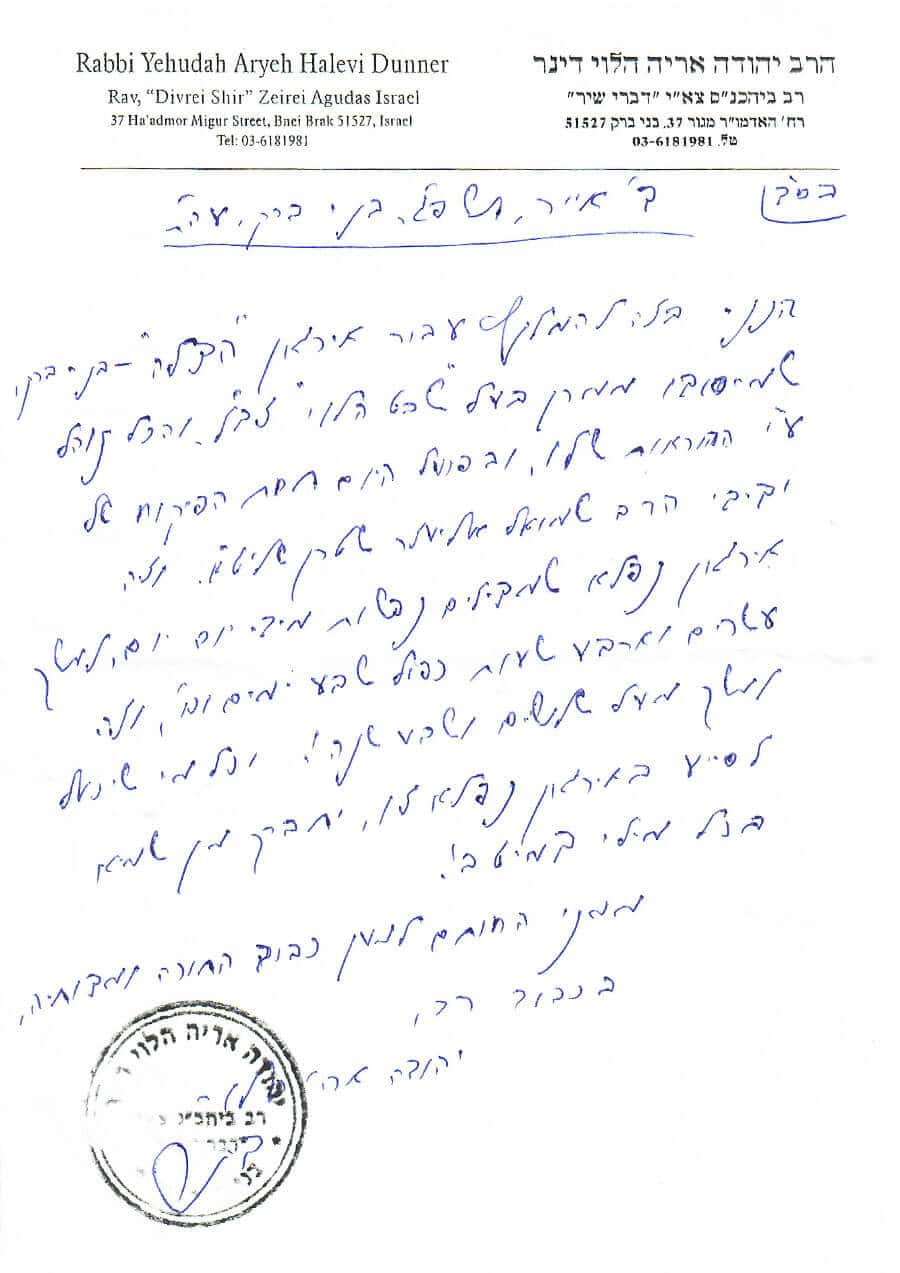 Rabbi Yehudah Aryeh Halevi Dunner
Rav, "Divrei Shir" Zeirei Agudas Israel
37 Ha'admor Migur Street, Bnei Brak 51527, Israel
Tel: 03-6181981
הרב יהודה אריה הלוי דינר
רב ביהכנ"ס צא"י "דברי שיר"
רח' האדמו"ר מגור 37, בני ברק 51527
טל. 03-6181981
בס"ד
ב' אייר, תשפ"ג, בני ברק, עה"ת
הנני בזה להמליץ עבור אירגון "הצלה" – בני ברק,
שמיסודו ממרן בעל "שבט הלוי" זצ"ל, והכל נוהל
ע"י ההוראות שלו, ובפועל היום תחת הפיקוח של
ידידי הרב שמואל אליעזר שטרן שליט"א. וזה
אירגון נפלא שמצילים נפשות מידי יום יום, למשך
עשרים וארבע שעות כפול שבע ימים וכו', וזה
למשך מעל שלושים ושבע שנה! וכל מי שיכול
לסייע באירגון נפלא זו, יתברך מן שמיא
בכל מילי דמיטב!
ממני החותם למען כבוד התורה ומצותיה,
בכבוד רב,
יהודה ארי' הלוי
יהודה אריה הלוי
רב ביהכ"נ